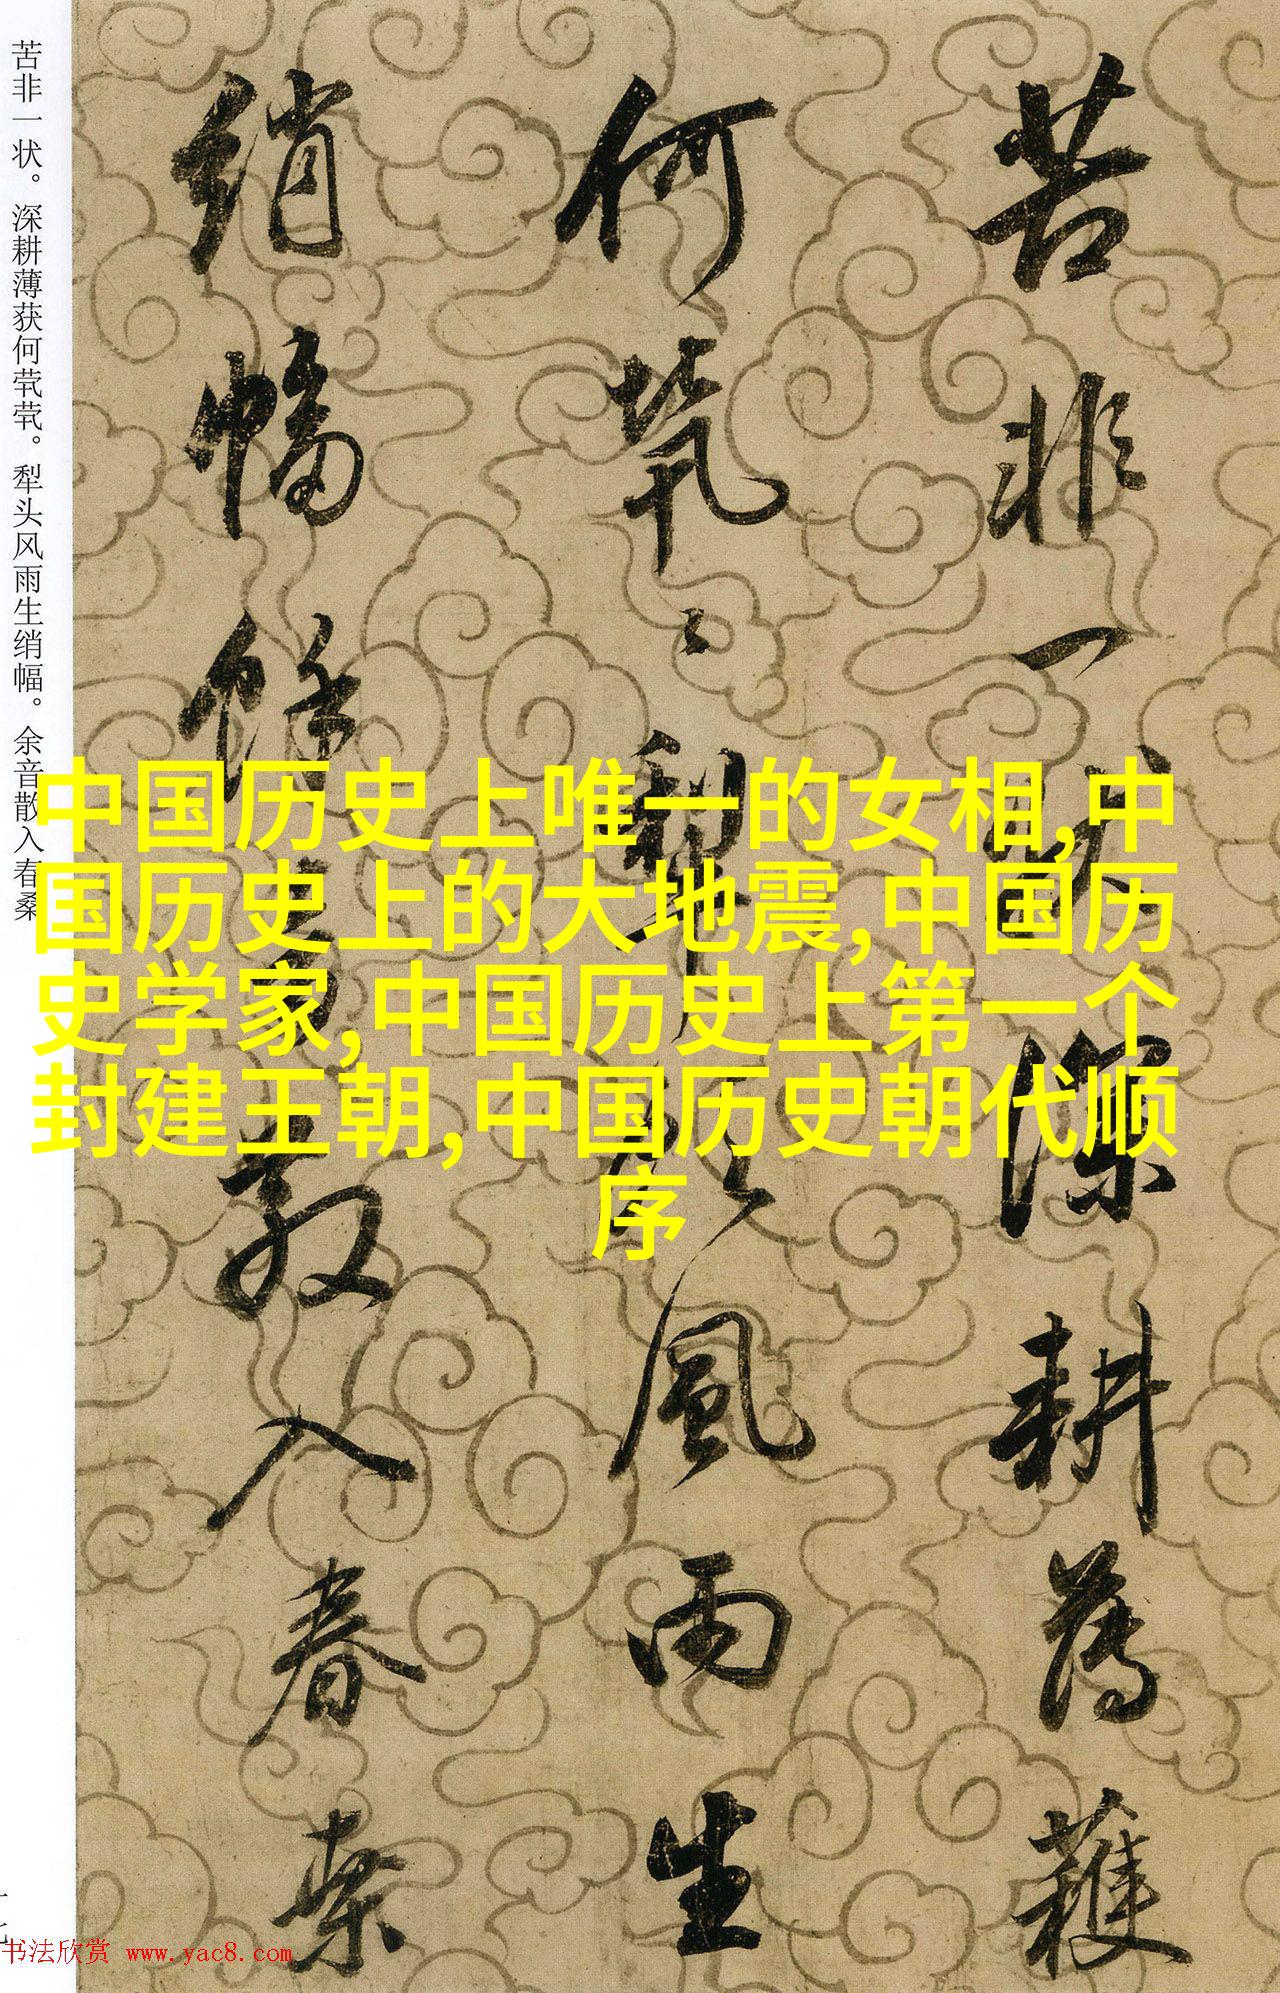 苦非一状。深耕薄获何茕茕。犁头风雨生绡幅。余音散入春桑
苦非一状深耕薄蘀
何茕〻犁头風雨生
绡幅馀音散入春桑
中国历史上唯一的女相,中
国历史上的大地震,中国历
史学家,中国历史上第一个
封建王朝,中国历史朝代顺
序
书法欣赏 www.yac8.com